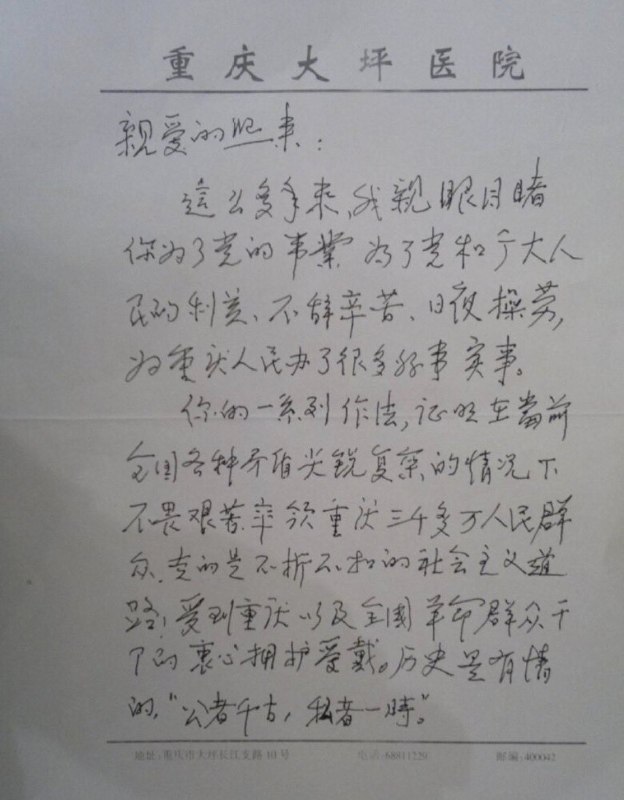 重庆大坪医院
親爱的熙来:
這么多年来,我親眼目睹
你为了党的事業 为了党和广大人
民的利益、不辞辛苦、日夜操劳,
为重庆人民办了很多好事实事。
你的一系列作法,证明在當前
全国各种矛盾尖锐复杂的情况下
不畏艰苦率领重庆三千多万人民群
众,走的是不折不扣的社会主义道
路!受到重庆以及全國革命群众干
下的衷心拥护爱戴。历史是有情
的,“公者千古,私者一時。”
地址:重庆市大坪长江支路10号 电话:68811229 邮编:400042